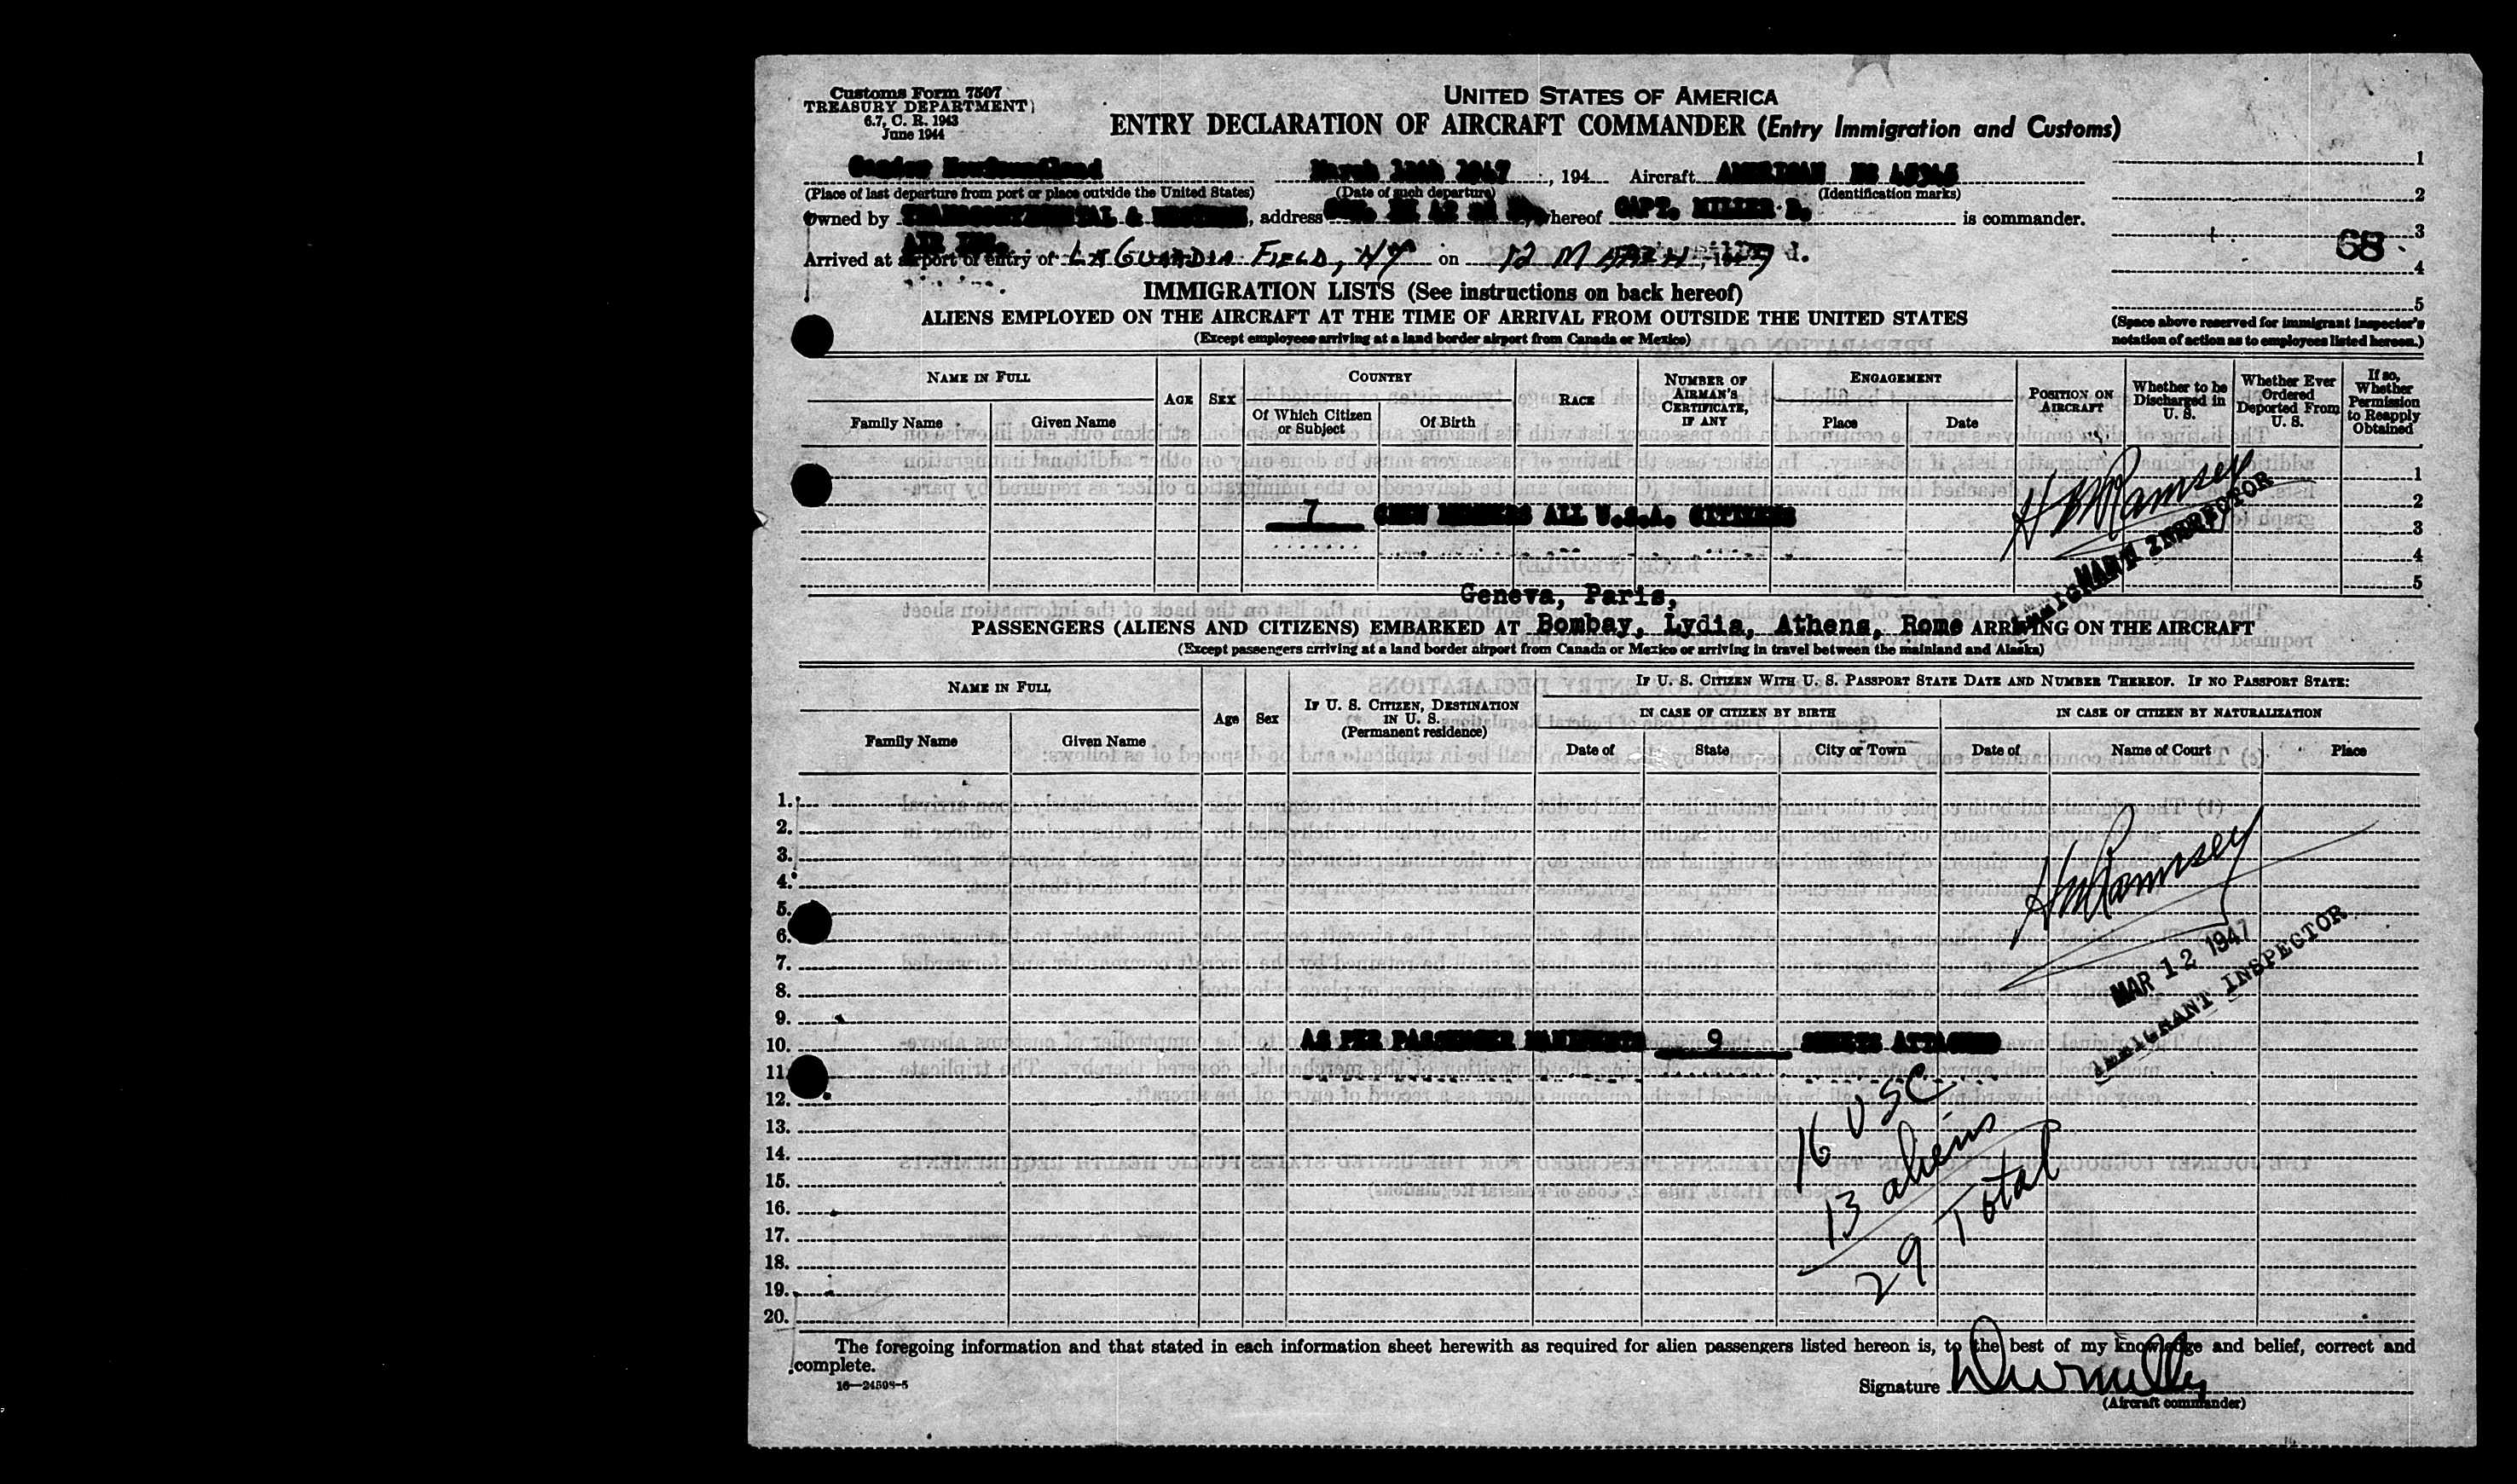 Customs Form 7507
TREASURY DEPARTMENT
6.7, C. R. 1943
June 1944
UNITED STATES OF AMERICA
ENTRY DECLARATION OF AIRCRAFT COMMANDER (Entry Immigration and Customs)
Gander Newfoundland March 12th 1947, 194 Aircraft AMERICAN NC
(Place of last departure from port or place outside the United States) (Date of such departure) (Identification marks)
Owned by TRANSCONTINENTAL & WESTERN, address whereof CAPT. MILLER is commander.
AIR INC.
Arrived at airport of entry of LAGUARDIA FIELD, NY on 12 MARCH, 1947.
1
2
3
68
4
5
(Space above reserved for immigrant inspector's notation of action as to employees listed hereon.)
IMMIGRATION LISTS (See instructions on back hereof)
ALIENS EMPLOYED ON THE AIRCRAFT AT THE TIME OF ARRIVAL FROM OUTSIDE THE UNITED STATES
(Except employees arriving at a land border airport from Canada or Mexico)
NAME IN FULL
Family Name Given Name
AGE SEX
COUNTRY
Of Which Citizen or Subject Of Birth
RACE
NUMBER OF AIRMAN'S CERTIFICATE, IF ANY
ENGAGEMENT
Place Date
POSITION ON AIRCRAFT
Whether to be Discharged in U. S.
Whether Ever Ordered Deported From U. S.
If so, Whether Permission to Reapply Obtained
1
2
7 CREW MEMBERS ALL U.S.A. CITIZENS
3
4
5
Ramsey
IMMIGRANT INSPECTOR
Geneva, Paris,
PASSENGERS (ALIENS AND CITIZENS) EMBARKED AT Bombay, Lydia, Athens, Rome ARRIVING ON THE AIRCRAFT
(Except passengers arriving at a land border airport from Canada or Mexico or arriving in travel between the mainland and Alaska)
NAME IN FULL
Family Name Given Name
Age Sex
IF U. S. CITIZEN, DESTINATION IN U. S.
(Permanent residence)
IF U. S. CITIZEN WITH U. S. PASSPORT STATE DATE AND NUMBER THEREOF. IF NO PASSPORT STATE:
IN CASE OF CITIZEN BY BIRTH IN CASE OF CITIZEN BY NATURALIZATION
Date of State City or Town Date of Name of Court Place
1.
2.
3.
4.
5.
6.
7.
8.
9.
10. AS PER PASSENGER MANIFESTS 9 SHEETS ATTACHED
11.
12.
13.
14.
15.
16.
17.
18.
19.
20.
Ramsey
MAR 12 1947
IMMIGRANT INSPECTOR
16 USC
13 aliens
29 Total
The foregoing information and that stated in each information sheet herewith as required for alien passengers listed hereon is, to the best of my knowledge and belief, correct and
complete.
16—24598-5
Signature
(Aircraft commander)